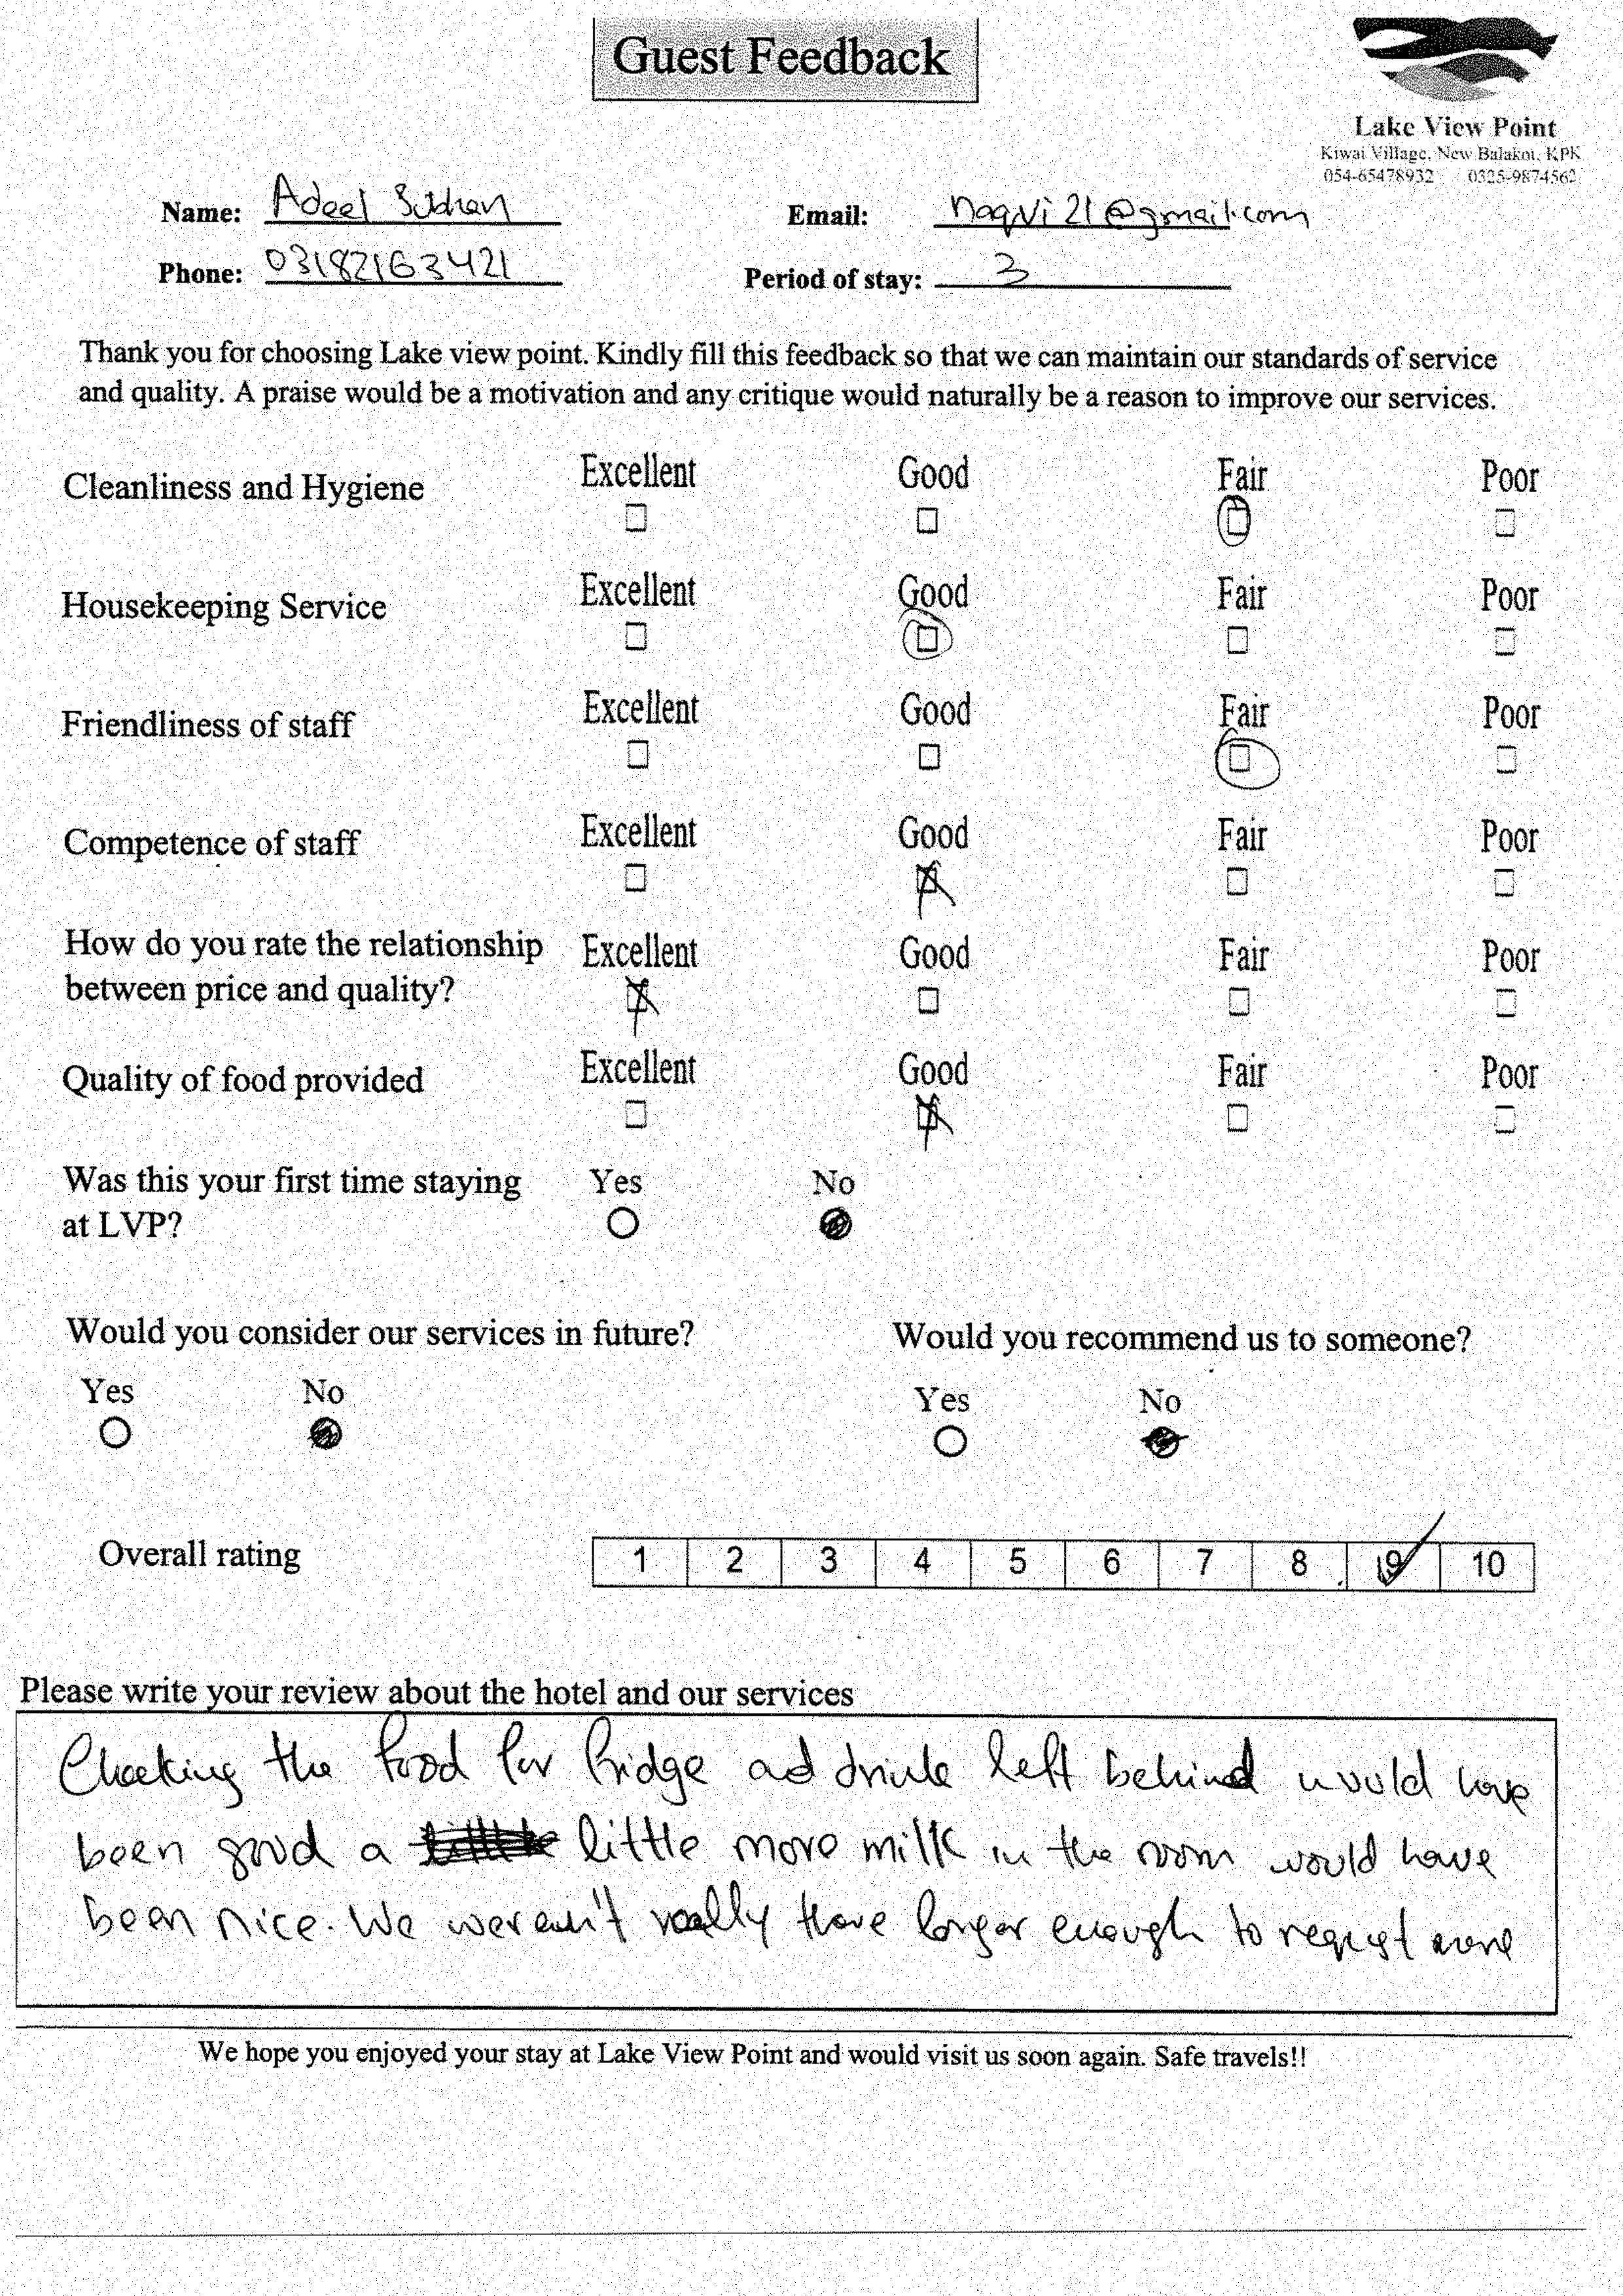 Guest Feedback
Lake View Point
Kiwai Village, New Balakot, KPK
054-65478932 0325-9874562
Name: Adeel Subhan Email: naqvi21@gmail.com
Phone: 03182163421 Period of stay: 3
Thank you for choosing Lake view point. Kindly fill this feedback so that we can maintain our standards of service
and quality. A praise would be a motivation and any critique would naturally be a reason to improve our services.
Cleanliness and Hygiene Excellent Good Fair Poor
Housekeeping Service Excellent Good Fair Poor
Friendliness of staff Excellent Good Fair Poor
Competence of staff Excellent Good Fair Poor
How do you rate the relationship Excellent Good Fair Poor
between price and quality?
Quality of food provided Excellent Good Fair Poor
Was this your first time staying Yes No
at LVP?
Would you consider our services in future? Would you recommend us to someone?
Yes No Yes No
Overall rating 1 2 3 4 5 6 7 8 9 10
Please write your review about the hotel and our services
Checking the food for fridge ad drink left behind would have
been good a little more milk in the room would have
been nice. We weren't really there longer enough to request more
We hope you enjoyed your stay at Lake View Point and would visit us soon again. Safe travels!!